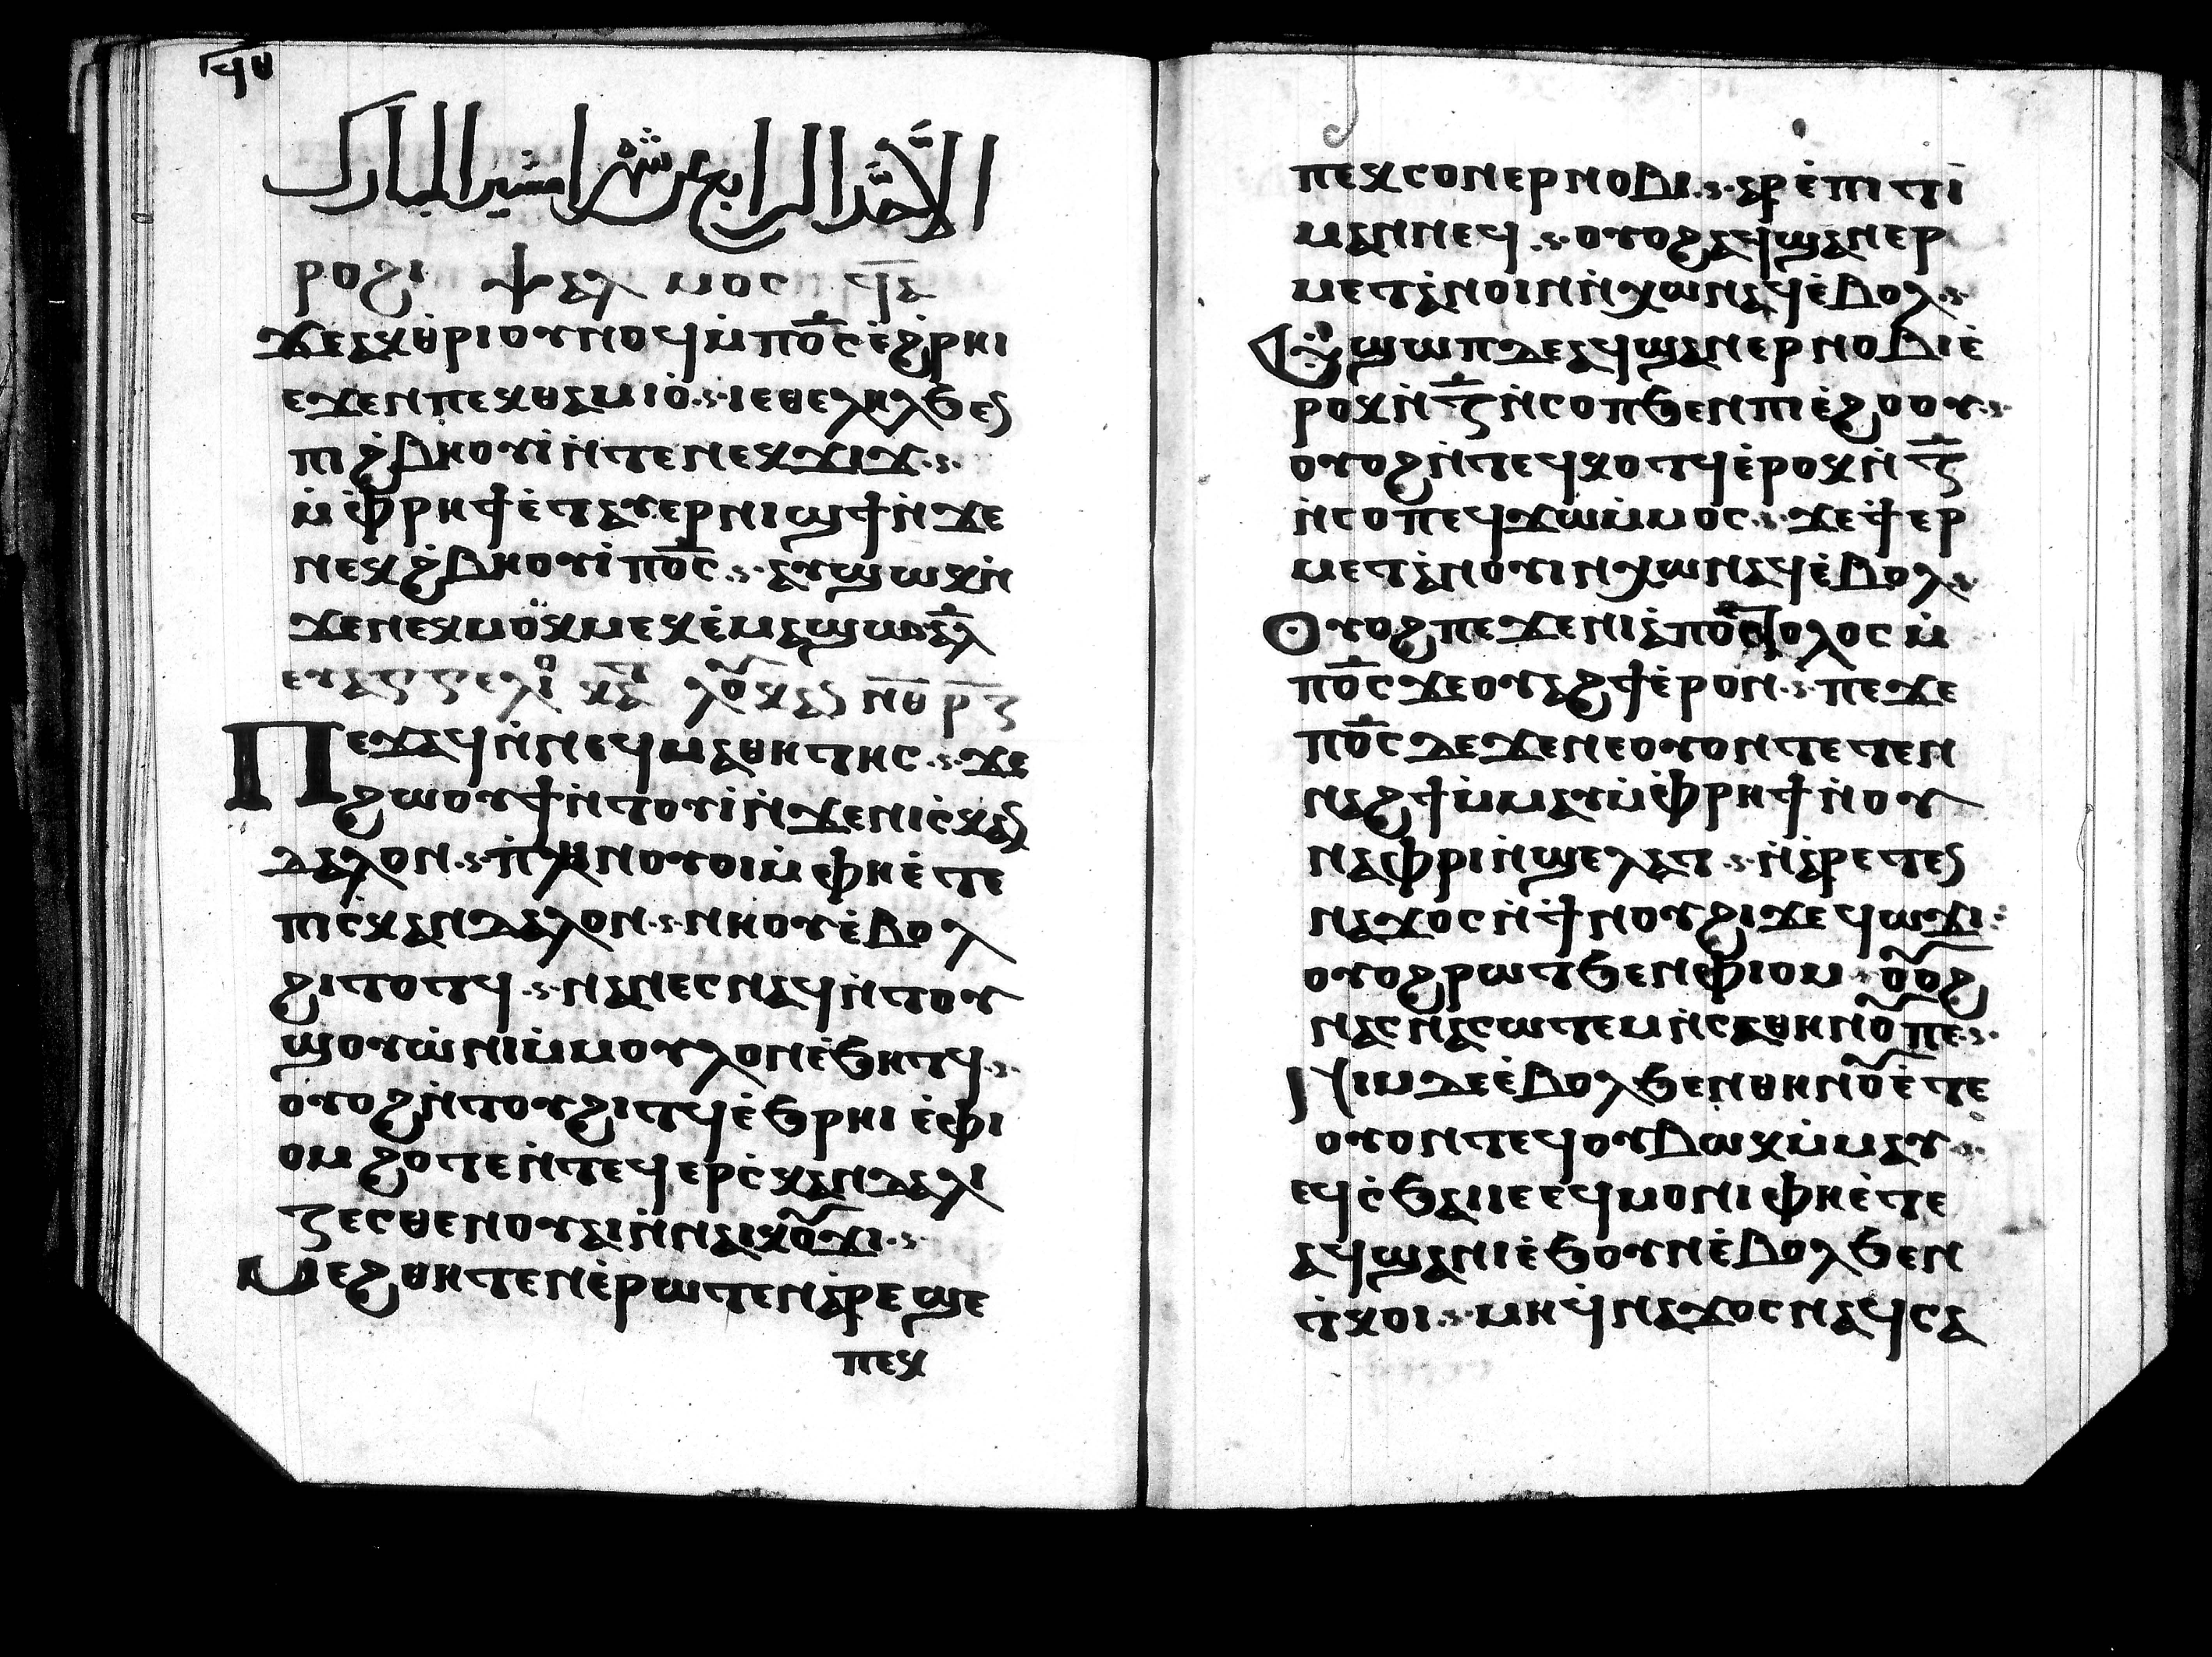 ϥⲑ
الاحد الرابع من شهر امشير المبارك
ⲣⲟϩⲓ ⲯⲁⲗⲙⲟⲥ ϥⲁ
ϫⲉⲁⲕⲑⲣⲓⲟⲩⲛⲟϥⲙ̀ⲡⲟ̅ⲥ̅ⲉ̀ϩ̀ⲣⲏⲓ
ⲉϫⲉⲛⲡⲉⲕⲑⲁⲙⲓⲟ̀ ⲓⲉⲑⲉⲗⲏⲗϧⲉⲛ
ⲡⲓϩ̀ⲃⲏⲟⲩⲓ̀ⲛ̀ⲧⲉⲛⲉⲕϫⲓϫ
ⲙ̀ⲫ̀ⲣⲏϯⲉ̀ⲧⲁⲩⲉⲣⲛⲓϣϯⲛ̀ϫⲉ
ⲛⲉⲕϩ̀ⲃⲏⲟⲩⲓ̀ⲡⲟ̅ⲥ̅ ⲁⲩϣⲱⲕⲛ̀
ϫⲉⲛⲉⲕⲙⲟ̈ⲕⲙⲉⲕⲉ̀ⲙⲁϣⲱⲁ̅ⲗ
ⲉⲩⲁⲅⲅⲉⲗⲓⲟ ⲕⲁ ⲗⲟⲩⲕⲁⲛ ⲛⲑ ⲣⲍ
ⲡⲉϫⲁϥⲛ̀ⲛⲉϥⲙⲁⲑⲏⲧⲏⲥ ϫⲉ
ϩⲱⲟⲩϯⲛ̀ⲧⲟⲩⲓ̀ⲛ̀ϫⲉⲛⲓⲥ̀ⲕⲁⲛ
ⲇⲁⲗⲟⲛ ⲡ̀ⲗⲏⲛⲟⲩⲟⲓⲙ̀ⲫⲏⲉ̀ⲧⲉ
ⲡⲓⲥ̀ⲕⲁⲛⲇⲁⲗⲟⲛ ⲛⲏⲟⲩⲉ̀ⲃⲟⲗ
ϩⲓⲧⲟⲧϥ ⲛⲁⲛⲉⲥⲛⲁϥⲛ̀ⲧⲟⲩ
ϣⲟⲩⲱ̀ⲛⲓⲙ̀ⲙⲟⲩⲗⲟⲛⲉ̀ϧⲏⲧϥ
ⲟⲩⲟϩⲛ̀ⲧⲟⲩϩⲓⲧϥⲉ̀ϧⲣⲏⲓ ⲉ̀ⲫⲓ
ⲟⲙ ϩⲟⲧⲉⲛ̀ⲧⲉϥⲉⲣⲥ̀ⲕⲁⲛⲇⲁⲗⲓ
ⲍⲉⲥⲑⲉⲛⲟⲩⲁⲓⲛ̀ⲛⲁⲓⲕⲟⲩϫⲓ
ⲙⲉϩⲑⲏⲧⲉⲛⲉ̀ⲣⲱⲧⲉⲛⲁ̀ⲣⲉϣⲉ
ⲡⲉⲕ
ⲡⲉⲕⲥⲟⲛⲉⲣⲛⲟⲃⲓ ⲁⲣⲉ̀ⲡⲓⲧⲓ
ⲙⲁⲛⲛⲉϥ ⲟⲩⲟϩⲁϥϣⲁⲛⲉⲣ
ⲙⲉⲧⲁ̀ⲛⲟⲓⲛⲛ̀ⲭⲱⲛⲁϥⲉ̀ⲃⲟⲗ
ⲉ̀ϣⲱⲡⲇⲉⲁϥϣⲁⲛⲉⲣⲛⲟⲃⲓⲉ̀
ⲣⲟⲕⲛ̀ⲍ̅ⲛ̀ⲥⲟⲡϧⲉⲛⲡⲓⲉ̀ϩⲟⲟⲩ
ⲟⲩⲟϩⲛ̀ⲧⲉϥⲕⲟⲧϥⲉ̀ⲣⲟⲕⲛ̀ⲍ̅
ⲛ̀ⲥⲟⲡⲉϥϫⲱⲙ̀ⲙⲟⲥ ϫⲉϯⲉⲣ
ⲙⲉⲧⲁ̀ⲛⲟⲩⲓⲛⲭⲱⲛⲁϥⲉ̀ⲃⲟⲗ
ⲟⲩⲟϩⲡⲉϫⲉⲛⲓⲁ̀ⲡⲟⲥⲧⲟⲗⲟⲥⲙ̀
ⲡⲟ̅ⲥ̅ϫⲉⲟⲩⲁϩϯⲉ̀ⲣⲟⲛ ⲡⲉϫⲉ
ⲡⲟ̅ⲥ̅ⲇⲉϫⲉⲛⲉⲟⲩⲟⲛⲧⲉⲧⲉⲛ
ⲛⲁϩϯⲙ̀ⲙⲁⲩⲙ̀ⲫ̀ⲣⲏϯⲛ̀ⲟⲩ
ⲛⲁⲫⲣⲓⲛ̀ϣⲉⲗⲁⲧ ⲛ̀ⲁ̀ⲣⲉⲧⲉⲛ
ⲛⲁϫⲟⲥⲛ̀ϯⲛⲟⲩϩⲓϫⲉϥⲱϫⲓ
ⲟⲩⲟϩⲣⲱⲧϧⲉⲛⲫⲓⲟⲙ ⲟⲩⲟϩ
ⲛⲁⲥⲛⲁⲥⲱⲧⲉⲙⲛ̀ⲥⲁⲑⲏⲛⲟⲩⲡⲉ
ⲛⲓⲙⲇⲉⲉ̀ⲃⲟⲗϧⲉⲛⲑⲏⲛⲟⲩⲉ̀ⲧⲉ
ⲟⲩⲟⲛⲧⲉϥⲟⲩⲃⲱⲕⲙ̀ⲙⲁⲩ
ⲉϥⲥ̀ϧⲁⲓⲓⲉⲉϥⲙⲟⲛⲓⲫⲏⲉ̀ⲧⲉ
ⲁϥϣⲁⲛⲓⲉ̀ϧⲟⲩⲛⲉ̀ⲃⲟⲗϧⲉⲛ
ⲧ̀ⲕⲟⲓ ⲙⲏϥⲛⲁϫⲟⲥⲛⲁϥⲥⲁ